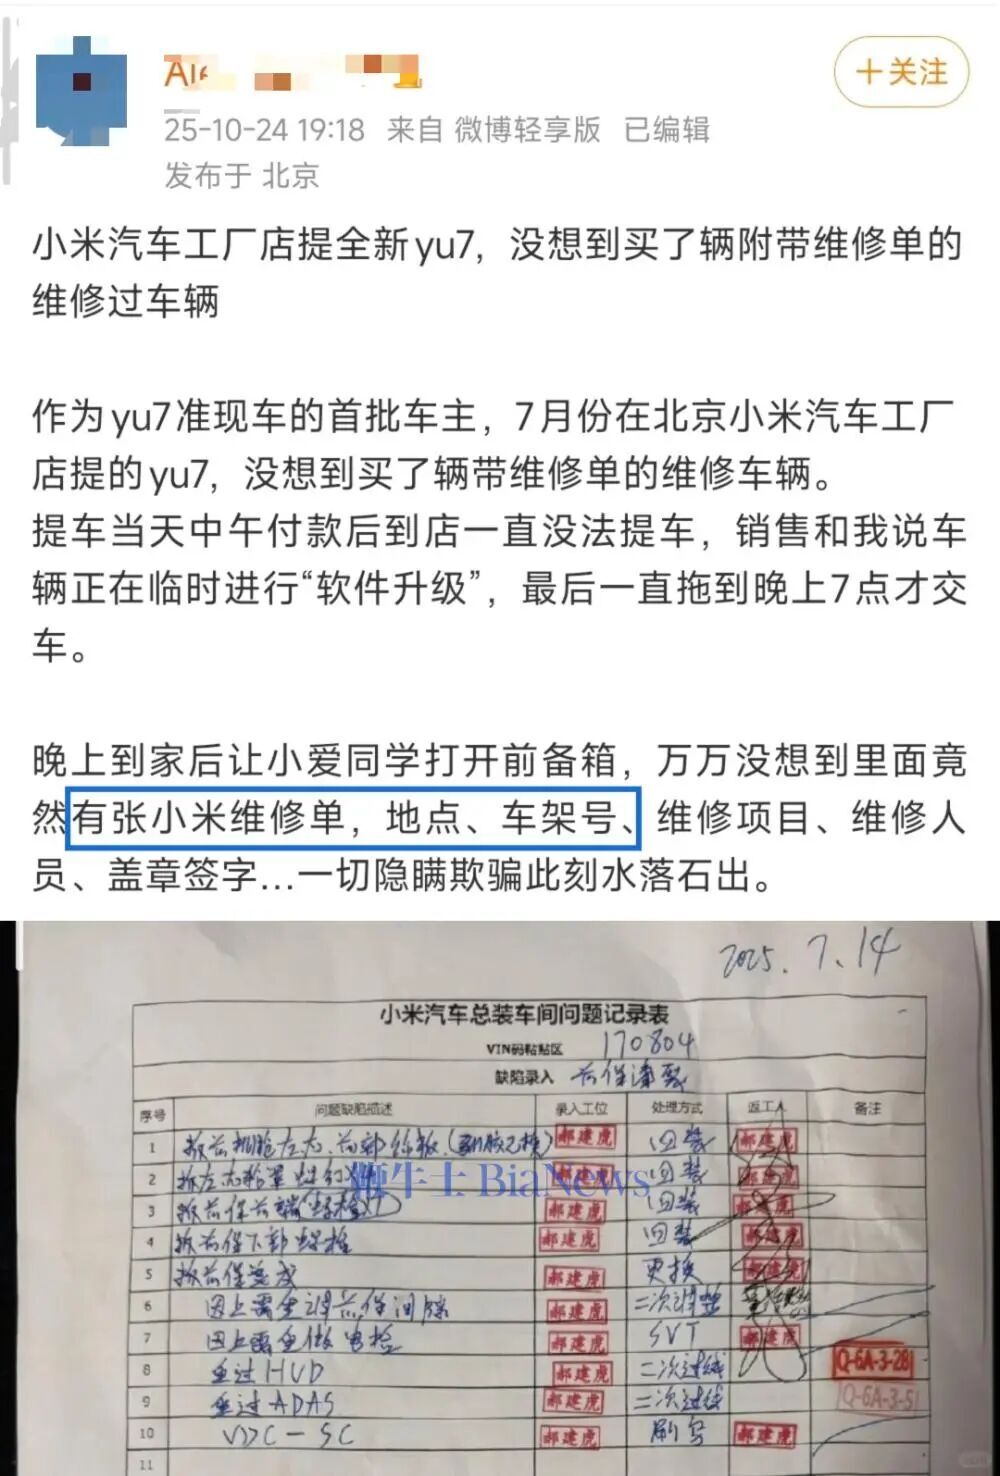 +关注
25-10-24 19:18 来自 微博轻享版 已编辑
发布于 北京
小米汽车工厂店提全新yu7，没想到买了辆附带维修单的
维修过车辆
作为yu7准现车的首批车主，7月份在北京小米汽车工厂
店提的yu7，没想到买了辆带维修单的维修车辆。
提车当天中午付款后到店一直没法提车，销售和我说车
辆正在临时进行“软件升级”，最后一直拖到晚上7点才交
车。
晚上到家后让小爱同学打开前备箱，万万没想到里面竟
然有张小米维修单，地点、车架号、维修项目、维修人
员、盖章签字...一切隐瞒欺骗此刻水落石出。
2025.7.14
小米汽车总装车间问题记录表
VIN码粘贴区 170804
缺陷录入 前保漆裂
序号 问题缺陷描述 录入工位 处理方式 返工人 备注
1 郝建虎 回装 郝建虎
2 郝建虎 回装 郝建虎
3 郝建虎 回装 郝建虎
4 拆前保下部螺栓 郝建虎 回装 郝建虎
5 拆前保总成 郝建虎 更换 郝建虎
6 因上需重调前保间隙 郝建虎 二次调整
7 因上需重做电检 郝建虎 SVT 郝建虎
8 重过HUD 郝建虎 二次过线 Q-6A-3-28
9 重过ADAS 郝建虎 二次过线 Q-6A-3-5
10 VDC-SC 郝建虎 刷写 郝建虎
11
BiaNews